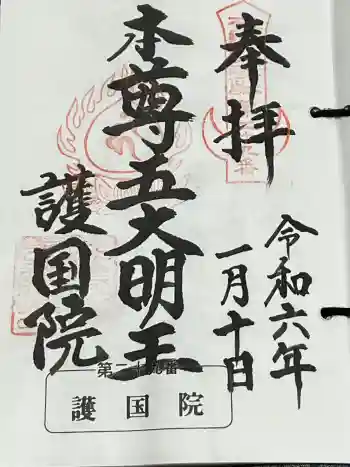 奉拝
令和六年
一月十日
本尊五大明王
護国院
第二十九番
護国院